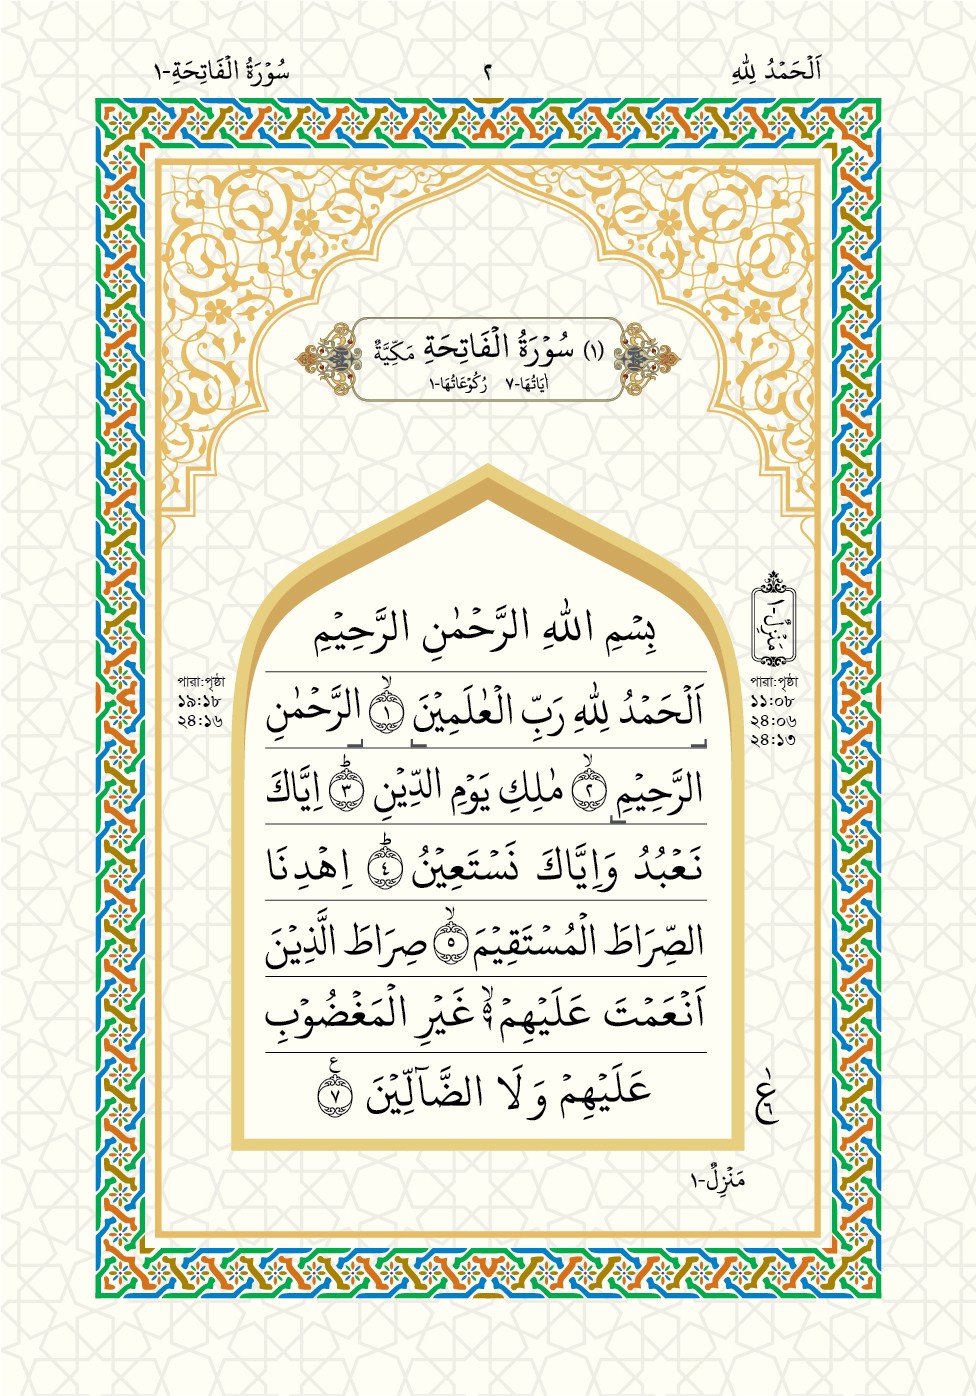 اَلْحَمْدُ لِلّٰهِ ٢ سُوْرَةُ الْفَاتِحَةِ-١
(١) سُوْرَةُ الْفَاتِحَةِ مَكِّيَّةٌ
اٰيَاتُهَا-٧ رُكُوْعَاتُهَا-١
بِسْمِ اللّٰهِ الرَّحْمٰنِ الرَّحِيْمِ
اَلْحَمْدُ لِلّٰهِ رَبِّ الْعٰلَمِيْنَ ۙ ١ الرَّحْمٰنِ
الرَّحِيْمِ ۙ ٢ مٰلِكِ يَوْمِ الدِّيْنِ ؕ ٣ اِيَّاكَ
نَعْبُدُ وَاِيَّاكَ نَسْتَعِيْنُ ؕ ٤ اِهْدِنَا
الصِّرَاطَ الْمُسْتَقِيْمَ ۙ ٥ صِرَاطَ الَّذِيْنَ
اَنْعَمْتَ عَلَيْهِمْ ۙ٦ غَيْرِ الْمَغْضُوْبِ
عَلَيْهِمْ وَلَا الضَّآلِّيْنَ ع ٧
مَنْزِلٌ-١
পারা:পৃষ্ঠা
১১:০৮
২৪:০৬
২৪:১৩
পারা:পৃষ্ঠা
১৯:১৮
২৪:১৬
مَنْزِلٌ-١